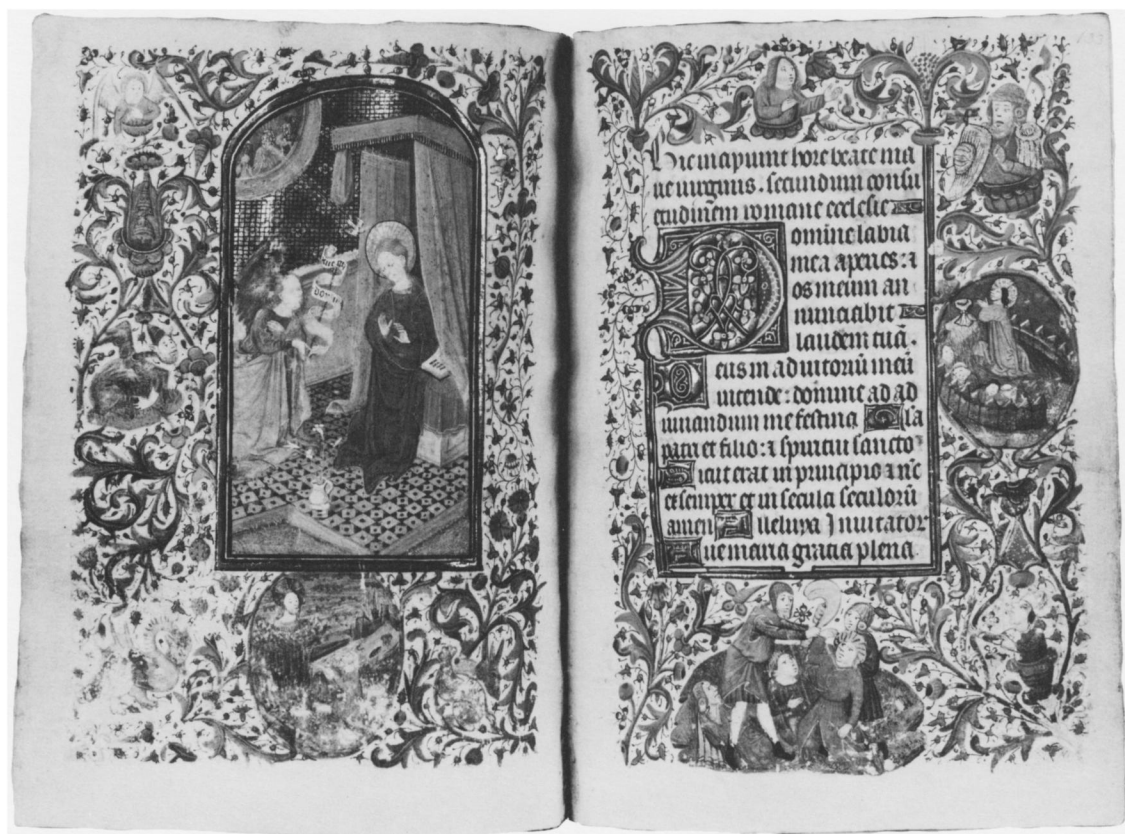 aue gr
Hic incipiunt hore beate ma
rie virginis. secundum consu
etudinem romane ecclesie
Domine labia
mea aperies: ⁊
os meum an
nunciabit
laudem tuā.
Deus in adiutoriū meū
intende: domine ad ad
iuuandum me festina Glīa
patri et filio: ⁊ spiritui sancto
Sicut erat in principio ⁊ nūc
et semper et in secula seculorū
amen Alleluya Inuitator
Aue maria gracia plena